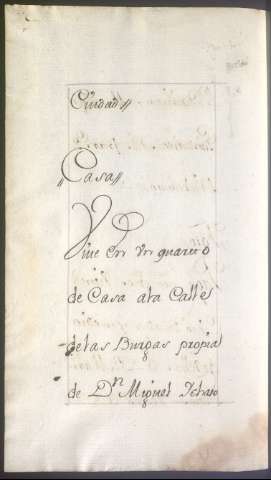 Ciudad//
//Casa//
Vive en vn quarto
de Casa ala Calle
de las Burgas propia
de Dn Miguel